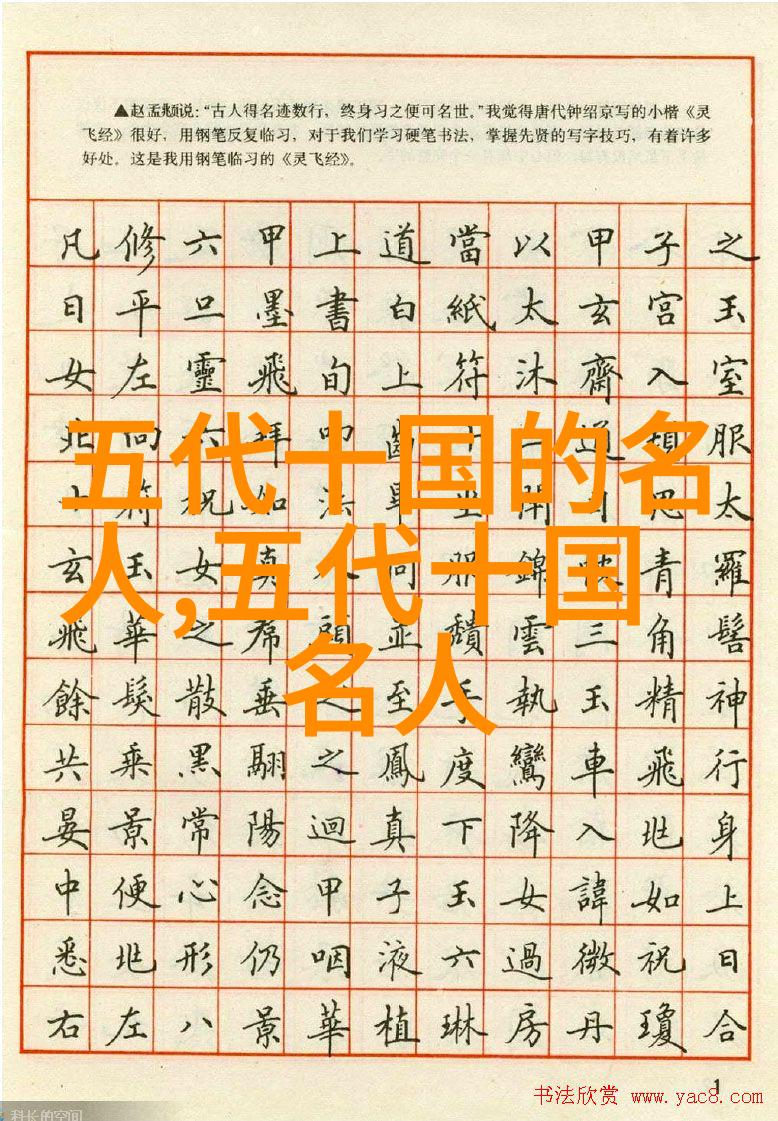 ▲赵孟頫说：“古人得名迹数行，终身习之便可名世。”我觉得唐代钟绍京写的小楷《灵
飞经》很好，用钢笔反复临习，对于我们学习硬笔书法，掌握先贤的写字技巧，有着许多
好处。这是我用钢笔临习的《灵飞经》。
凡修六甲上道當以甲子之
日平旦墨書白紙太玄宮玉
女左靈飛旬上符沐齋入室
北向六拜叩齒十二通頓服
十符祝如法畢坐開目思太
玄玉女真人同服錦帔青羅
飛華之帬頭並頹雲三角髻
餘髮散垂之至手執玉精神
共乘黑翮之鳳度鸞車飛行
晏景常陽迴真下降入北身
中便心念甲子玉女諱如上
悉北形仍咽液六過微祝曰
右左八景華植琳房丹瓊合
五代十国的名
人,五代十国
名人
1
书法欣赏 www.yac8.com
科长的空间